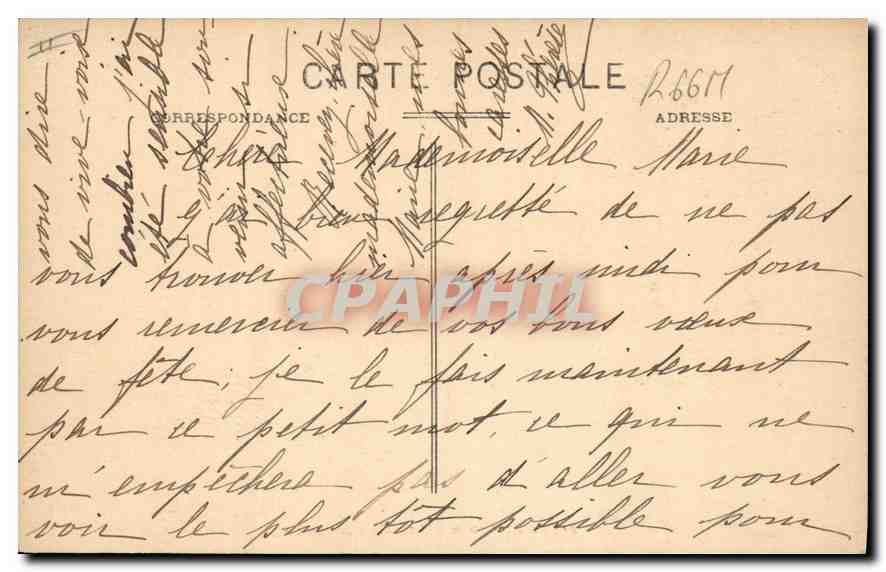 CARTE POSTALE
R66M
CORRESPONDANCE
ADRESSE
Chère Mademoiselle Marie
J'ai bien regretté de ne pas
vous trouver hier après midi pour
vous remercier de vos bons vœux
de fête; je le fais maintenant
par ce petit mot, ce qui ne
m'empêchera pas d'aller vous
voir le plus tôt possible pour
vous dire
de vive-voix
combien j'ai
été sensible
à votre
affectueux
Recevez, chère
mademoiselle
Marie, mes
bonnes
CPAPHIL